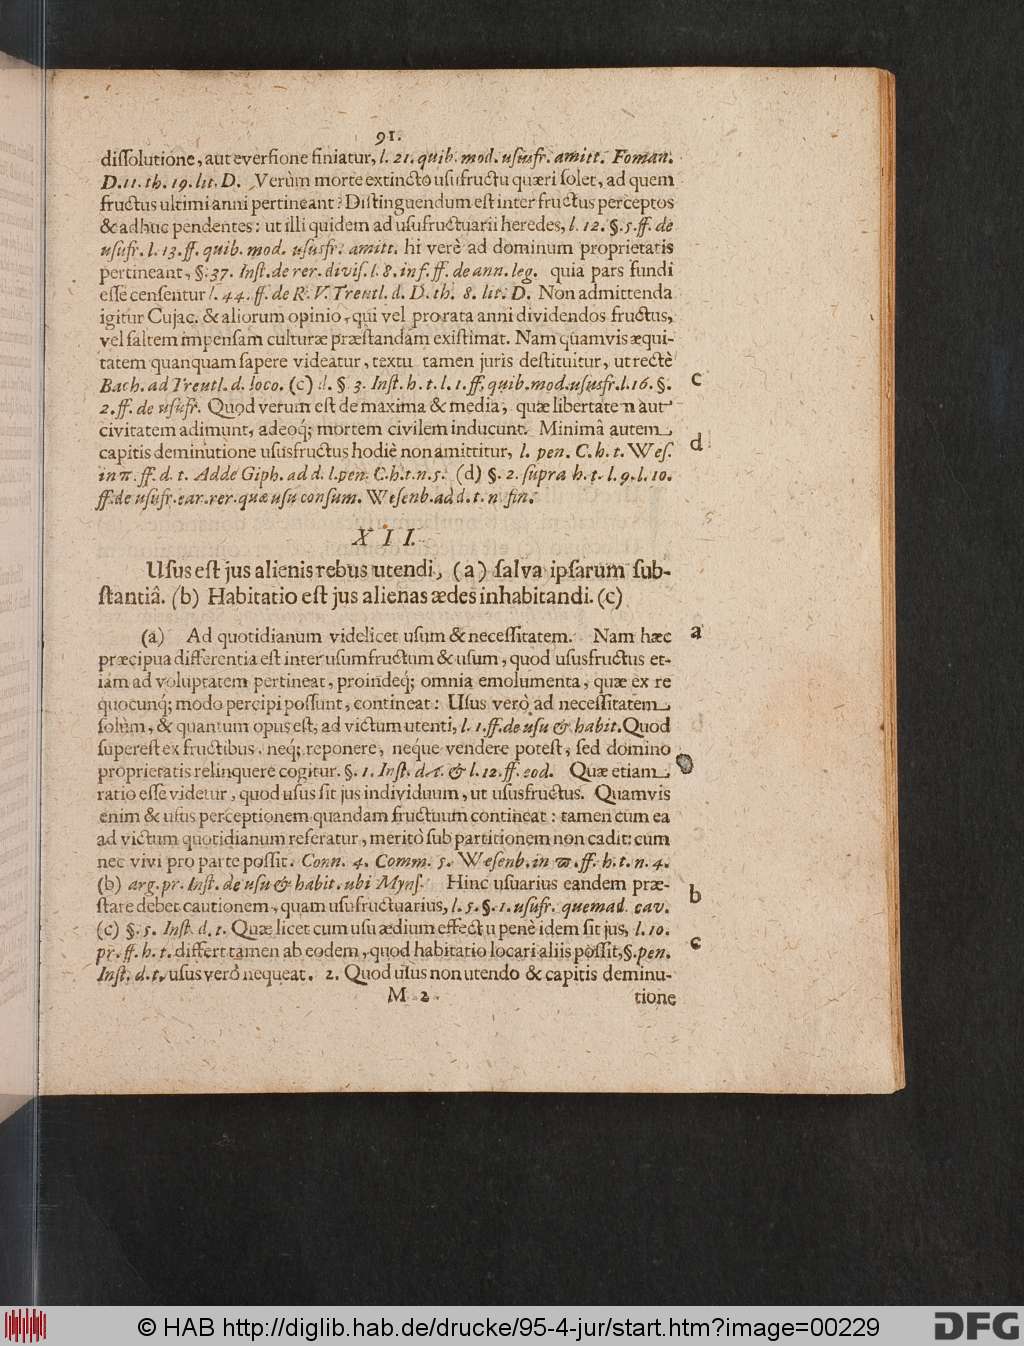 91.
dissolutione, aut eversione finiatur, l. 21. quib. mod. ususfr. amitt. Foman.
D. 11. th. 19. lit. D. Verùm morte extincto usufructu quæri solet, ad quem
fructus ultimi anni pertineant? Distinguendum est inter fructus perceptos
& adhuc pendentes: ut illi quidem ad usufructuarii heredes, l. 12. §. 5. ff. de
usufr. l. 13. ff. quib. mod. ususfr. amitt. hi verè ad dominum proprietatis
pertineant, §. 37. Inst. de rer. divis. l. 8. in f. ff. de ann. leg. quia pars fundi
esse censentur l. 44. ff. de R. V. Treutl. d. D. th. 8. lit. D. Non admittenda
igitur Cujac. & aliorum opinio, qui vel pro rata anni dividendos fructus,
vel saltem impensam culturæ præstandam existimat. Nam quamvis æqui-
tatem quanquam sapere videatur, textu tamen juris destituitur, ut rectè
Bach. ad Treutl. d. loco. (c) d. §. 3. Inst. h. t. l. 1. ff. quib. mod. ususfr. l. 16. §. c
2. ff. de usufr. Quod verum est de maxima & media, quæ libertatem aut
civitatem adimunt, adeoq; mortem civilem inducunt. Minimâ autem
capitis deminutione ususfructus hodiè non amittitur, l. pen. C. h. t. Wes. d
in π. ff. d. t. Adde Giph. ad d. l. pen. C. h. t. n. 5. (d) §. 2. supra h. t. l. 9. l. 10.
ff. de usufr. ear. rer. quæ usu consum. Wesenb. ad d. t. n. fin.
XII.
Usus est jus alienis rebus utendi, (a) salva ipsarum sub-
stantiâ. (b) Habitatio est jus alienas ædes inhabitandi. (c)
(a) Ad quotidianum videlicet usum & necessitatem. Nam hæc a
præcipua differentia est inter usumfructum & usum, quod ususfructus et-
iam ad voluptatem pertineat, proindeq; omnia emolumenta, quæ ex re
quocunq; modo percipi possunt, contineat: Usus verò ad necessitatem
solùm, & quantum opus est, ad victum utenti, l. 1. ff. de usu & habit. Quod
superest ex fructibus, neq; reponere, neque vendere potest, sed domino
proprietatis relinquere cogitur. §. 1. Inst. d. t. & l. 12. ff. eod. Quæ etiam
ratio esse videtur, quod usus sit jus individuum, ut ususfructus. Quamvis
enim & usus perceptionem quandam fructuum contineat: tamen cum ea
ad victum quotidianum referatur, meritò sub partitionem non cadit: cum
nec vivi pro parte possit. Conn. 4. Comm. 5. Wesenb. in π. ff. h. t. n. 4.
(b) arg. pr. Inst. de usu & habit. ubi Myns. Hinc usuarius eandem præ- b
stare debet cautionem, quam usufructuarius, l. 5. §. 1. usufr. quemad. cav.
(c) §. 5. Inst. d. t. Quæ licet cum usu ædium effectu penè idem sit jus, l. 10. c
pr. ff. h. t. differt tamen ab eodem, quod habitatio locari aliis possit, §. pen.
Inst. d. t. usus verò nequeat. 2. Quod usus non utendo & capitis deminu-
M 2 tione
© HAB http://diglib.hab.de/drucke/95-4-jur/start.htm?image=00229
DFG